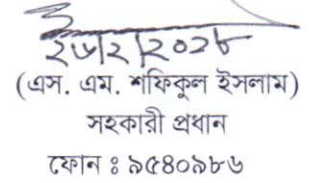 (এস. এম. শফিকুল ইসলাম)
সহকারী প্রধান
ফোন ঃ ৯৫৪০৯৮৬